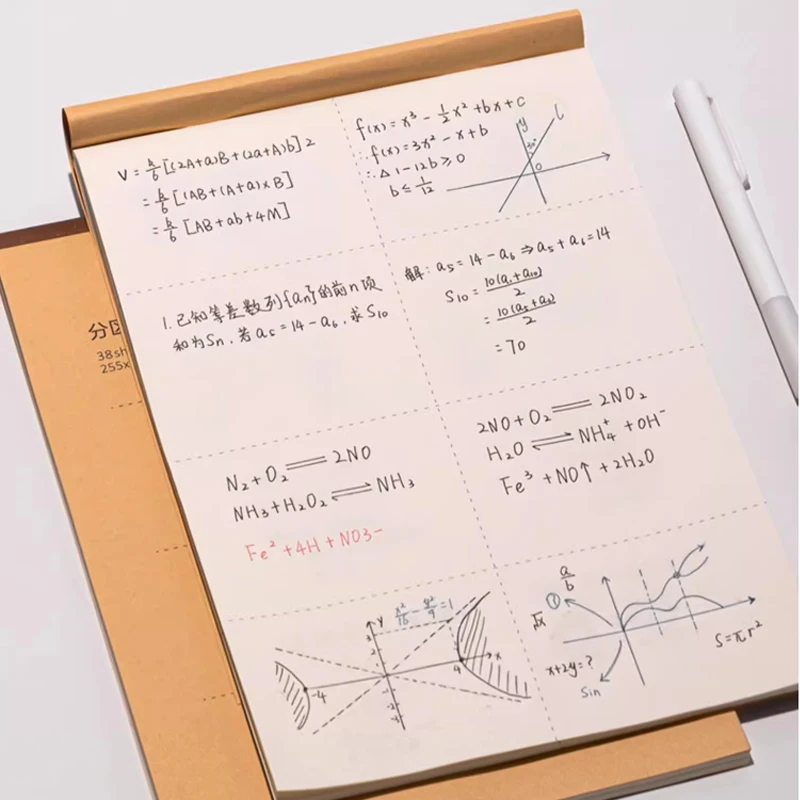 V = h/6[(2A+a)B+(2a+A)b]2
= h/6[(AB+(A+a)×B]
= h/6[AB+ab+4M]
f(x)=x³-1/2x²+bx+c
∴f(x)=3x²-x+b
∴△1-12b≥0
b≤1/12
y
l
30°
0
1.已知等差数列{an}的前n项
和为Sn,若a5=14-a6,求S10
解:a5=14-a6⇒a5+a6=14
S10=10(a1+a10)/2
=10(a5+a6)/2
=70
分区
38sh
255x
N₂+O₂═2NO
NH₃+H₂O₂⇌NH₃
Fe²+4H+NO3-
2NO+O₂═2NO₂
H₂O⇌NH₄⁺+OH⁻
Fe³+NO↑+2H₂O
x²/16-y²/9=1
y
x
-4
4
a/b
①
√x
x+2y=?
Sin
S=πr²